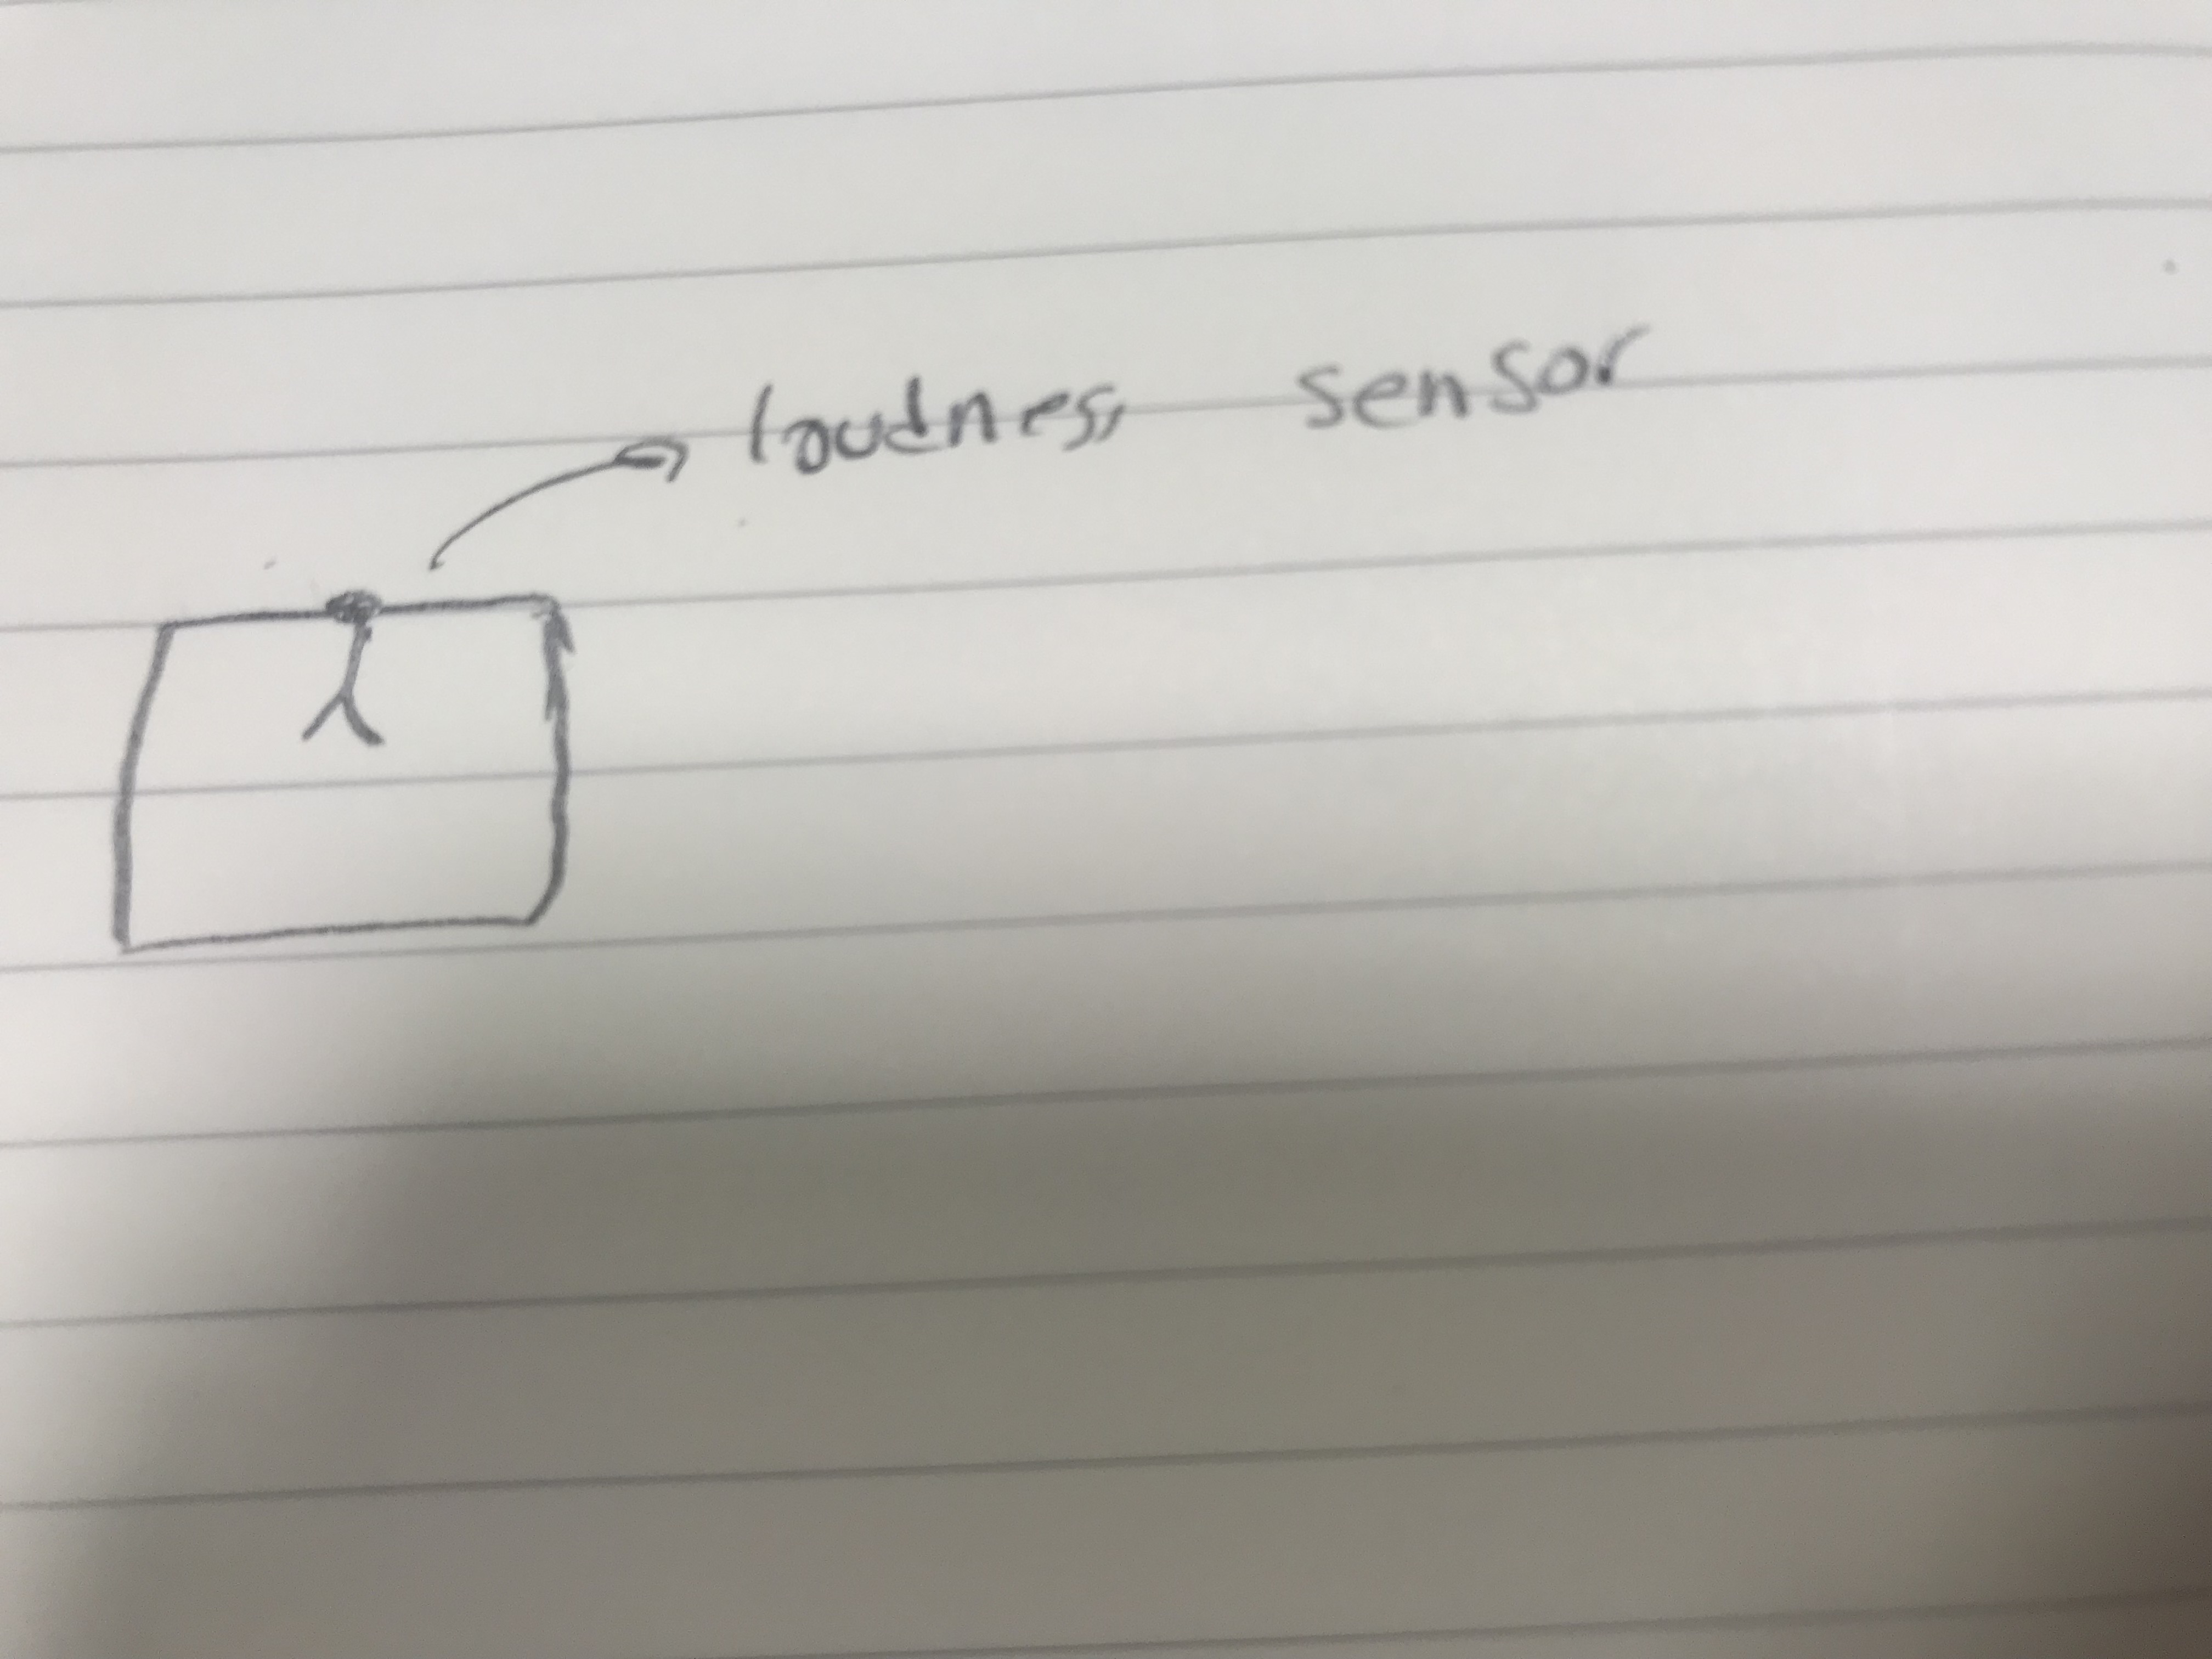 loudness sensor